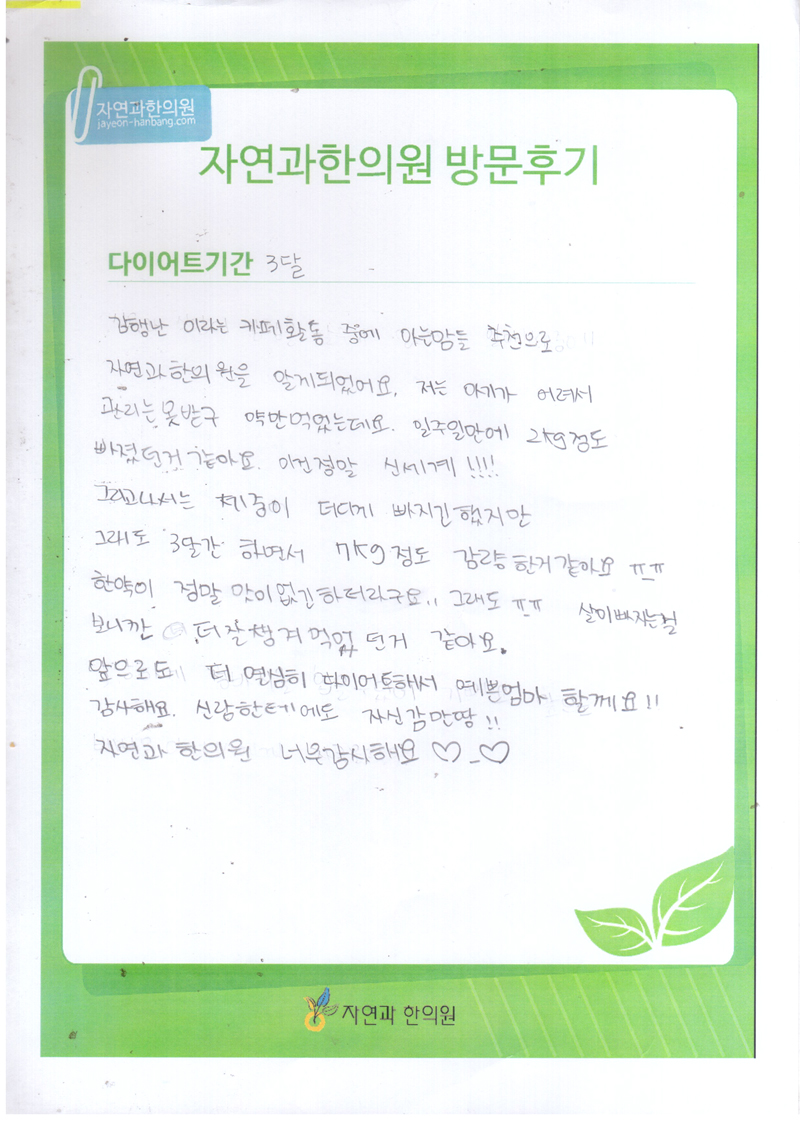 자연과한의원
jayeon-hanbang.com
자연과한의원 방문후기
다이어트기간 3달
감행난 이라는 카페활동 중에 아는맘들 추천으로
자연과한의원을 알게되었어요. 저는 아기가 어려서
관리는못받구 약만먹었는데요. 일주일만에 2kg정도
빠졌던거같아요. 이건정말 신세계!!!!
그리고나서는 체중이 더디게 빠지긴했지만
그래도 3달간 하면서 7kg정도 감량한거같아요 ㅠ_ㅠ
한약이 정말 맛이없긴하더라구요.. 그래도 ㅠㅠ 살이빠지는걸
보니깐 더잘챙겨먹었던거 같아요.
앞으로도 더 열심히 다이어트해서 예쁜엄마 할께요!!
감사해요. 신랑한테에도 자신감만땅!!
자연과 한의원 너무감사해요 ♡_♡
자연과 한의원